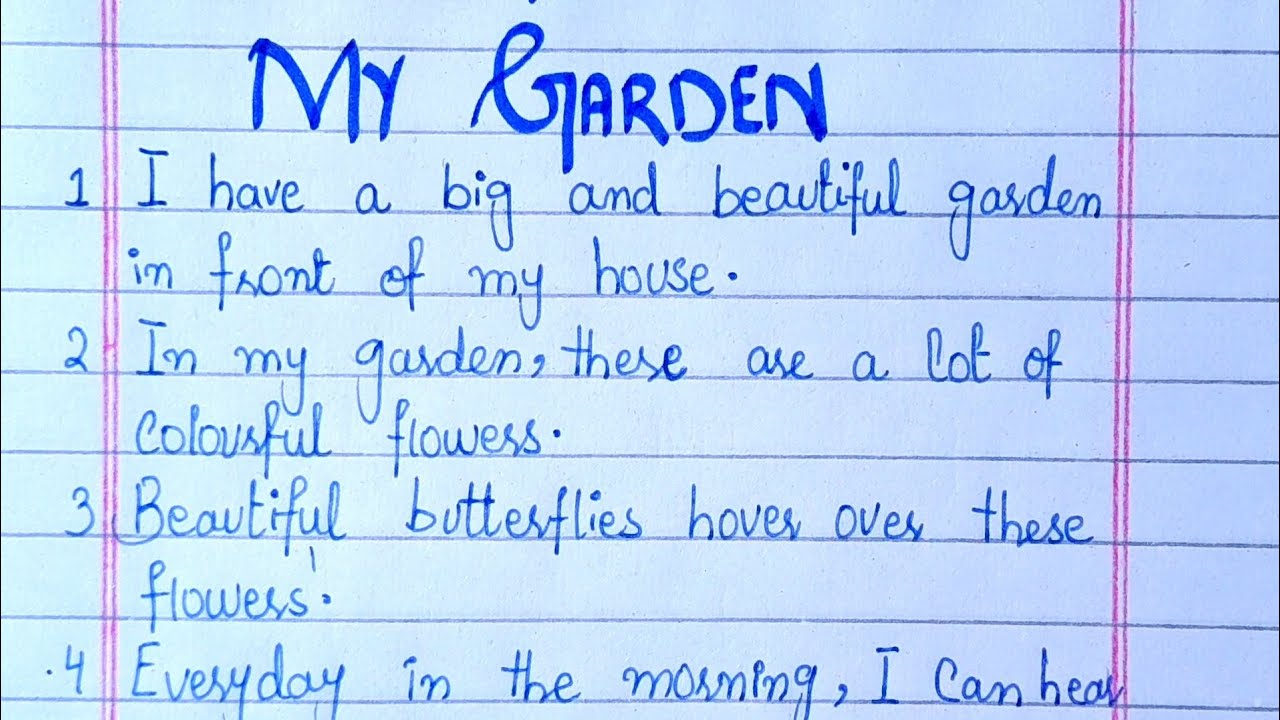 MY GARDEN
1 I have a big and beautiful garden
in front of my house.
2 In my garden, there are a lot of
colourful flowers.
3 Beautiful butterflies hover over these
flowers.
4 Everyday in the morning, I can hear